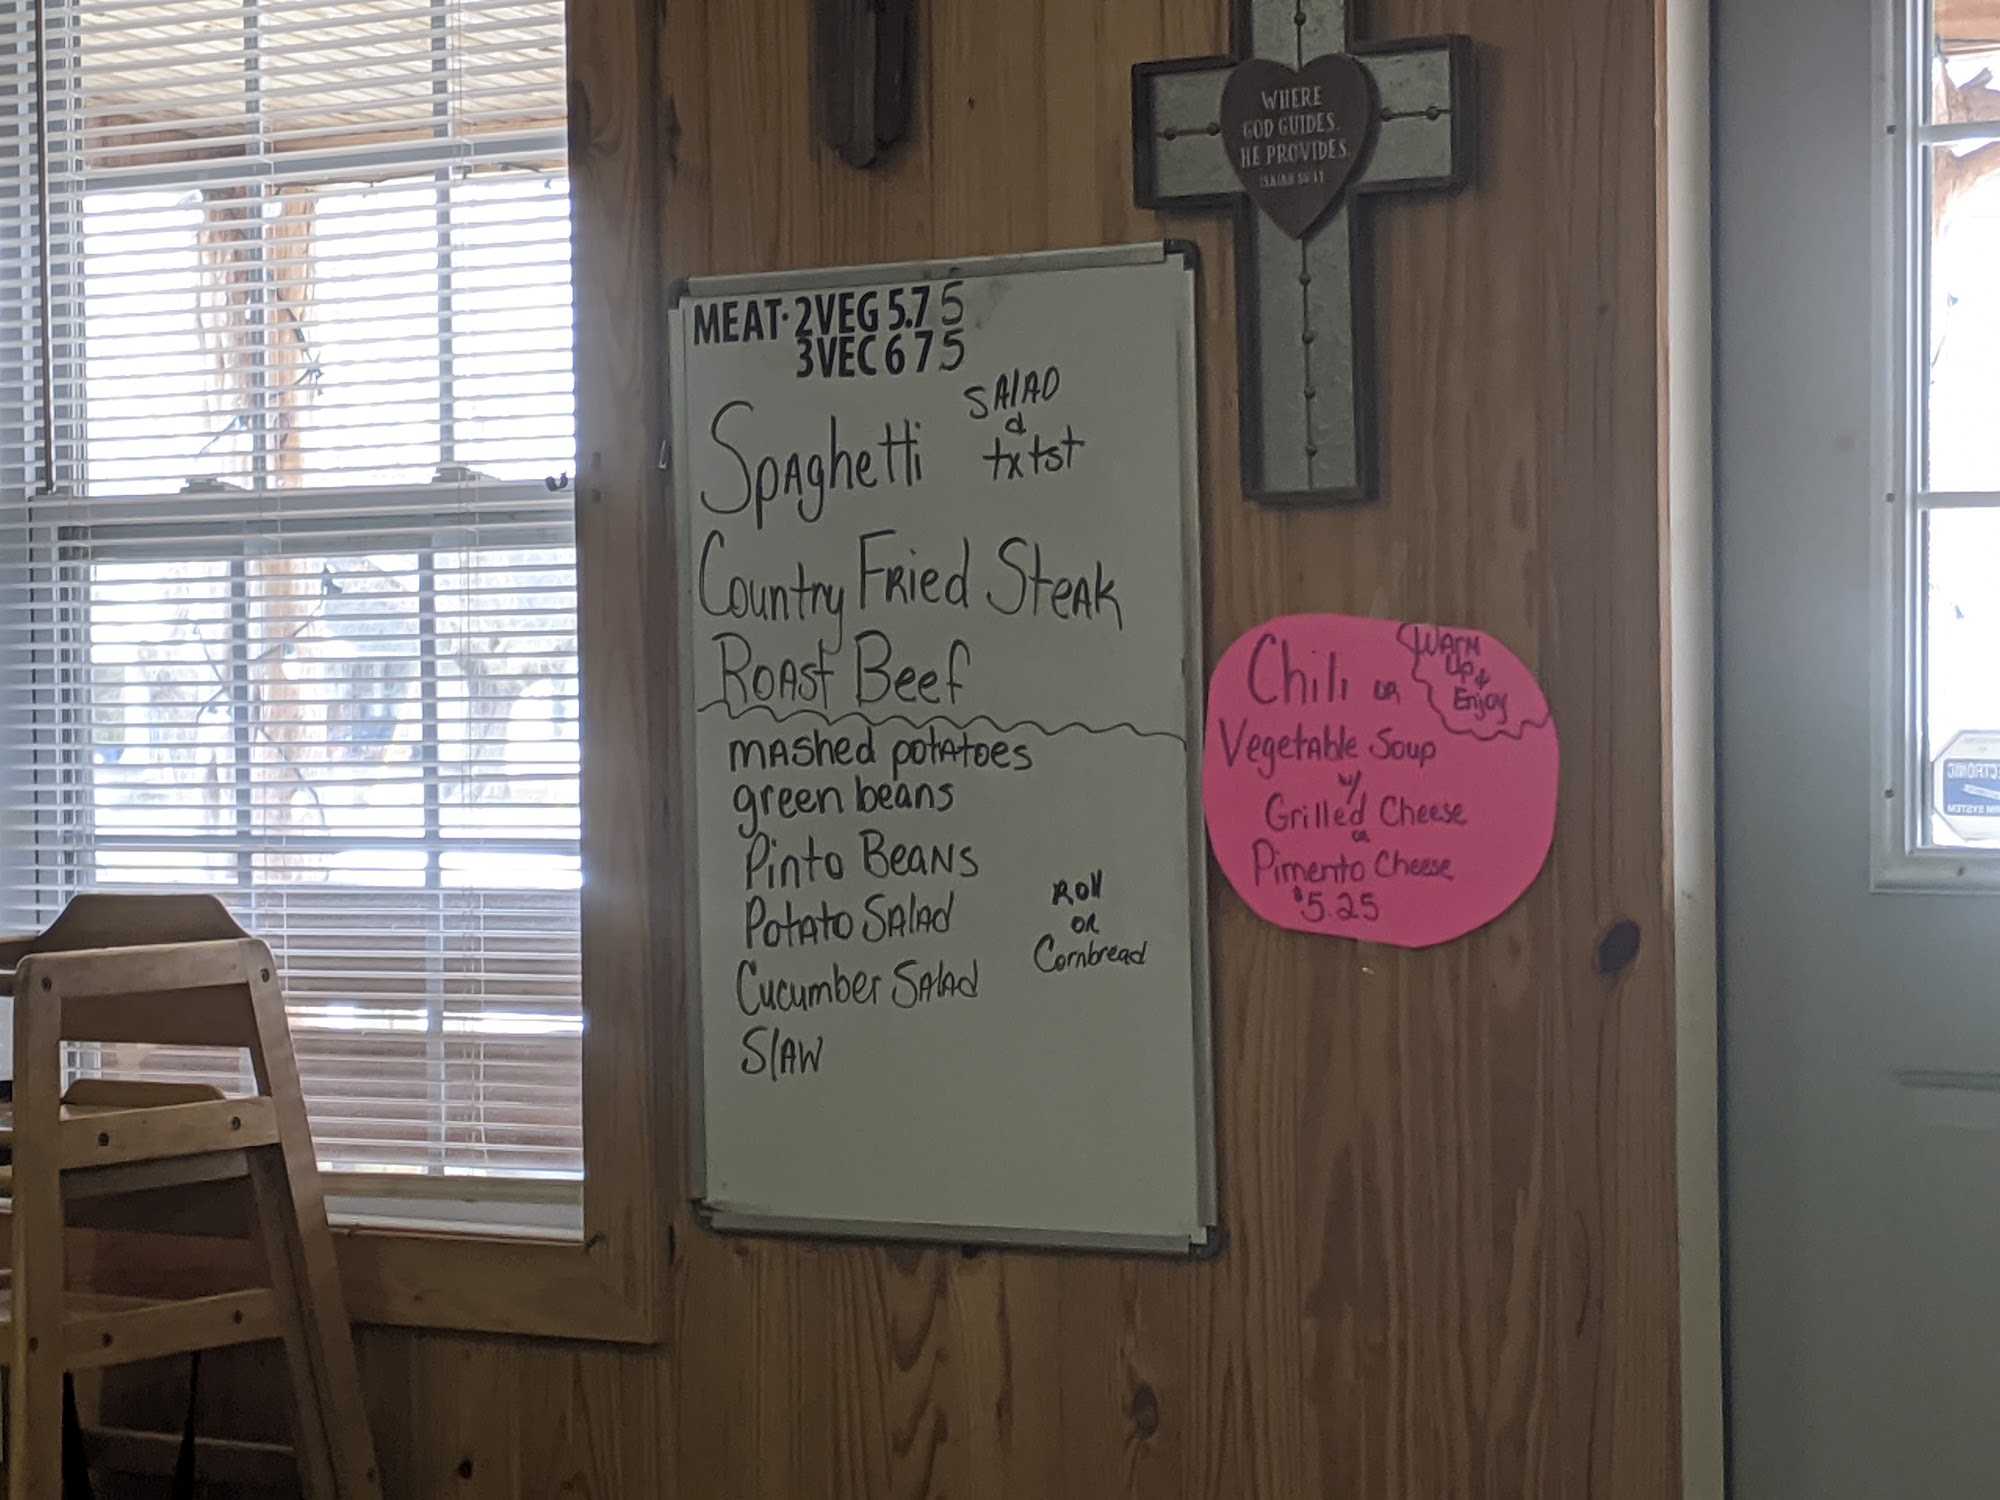 WHERE
GOD GUIDES,
HE PROVIDES.
ISAIAH 58:11
MEAT· 2VEG 5.75
3VEC 6 75
Spaghetti
SAlAD
&
tx tst
Country Fried Steak
Roast Beef
mashed potatoes
green beans
Pinto Beans
Potato Salad
Cucumber Salad
Slaw
Roll
or
Cornbread
Chili or
Warm
Up &
Enjoy
Vegetable Soup
w/
Grilled Cheese
or
Pimento Cheese
$5.25